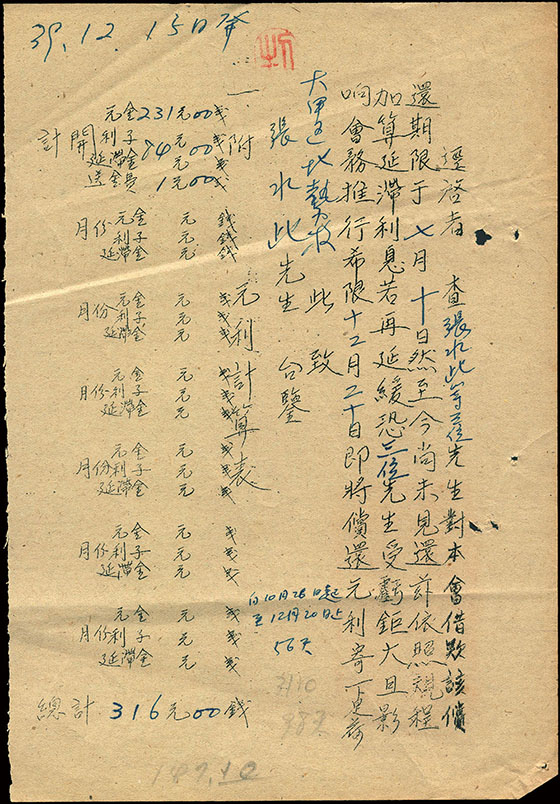 39.12.15日發
逕啓者 查張水此等三位先生對本會借欵該償
還期限于七月十日然至今尚未見還 依照規程
加算延滯利息若再延緩恐三位先生受虧鉅大且影
响會務推行希限十二月二十日即將償還元利寄下是荷
此致
張水此先生 台鑒
一、附元利計算表
計開
元金231元00戋
利子84元00戋
延滯金 元 戋
送金費1元00戋
月份 元金 元 錢
利子 元 錢
延滯金 元 錢
月份 元金 元 戋
利子 元 戋
延滯金 元 戋
月份 元金 元 戋
利子 元 戋
延滯金 元 戋
月份 元金 元 戋
利子 元 戋
延滯金 元 戋
月份 元金 元 戋
利子 元 戋
延滯金 元 戋
月份 元金 元 戋
利子 元 戋
延滯金 元 戋
自10月26日起
至12月20日止
56天
總計316元00錢